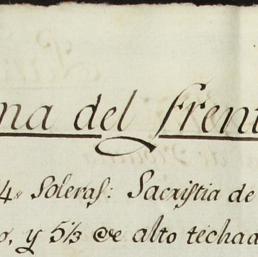 na del frent
4. Soleras: Sacristia de
o, y 5⅓ de alto techad